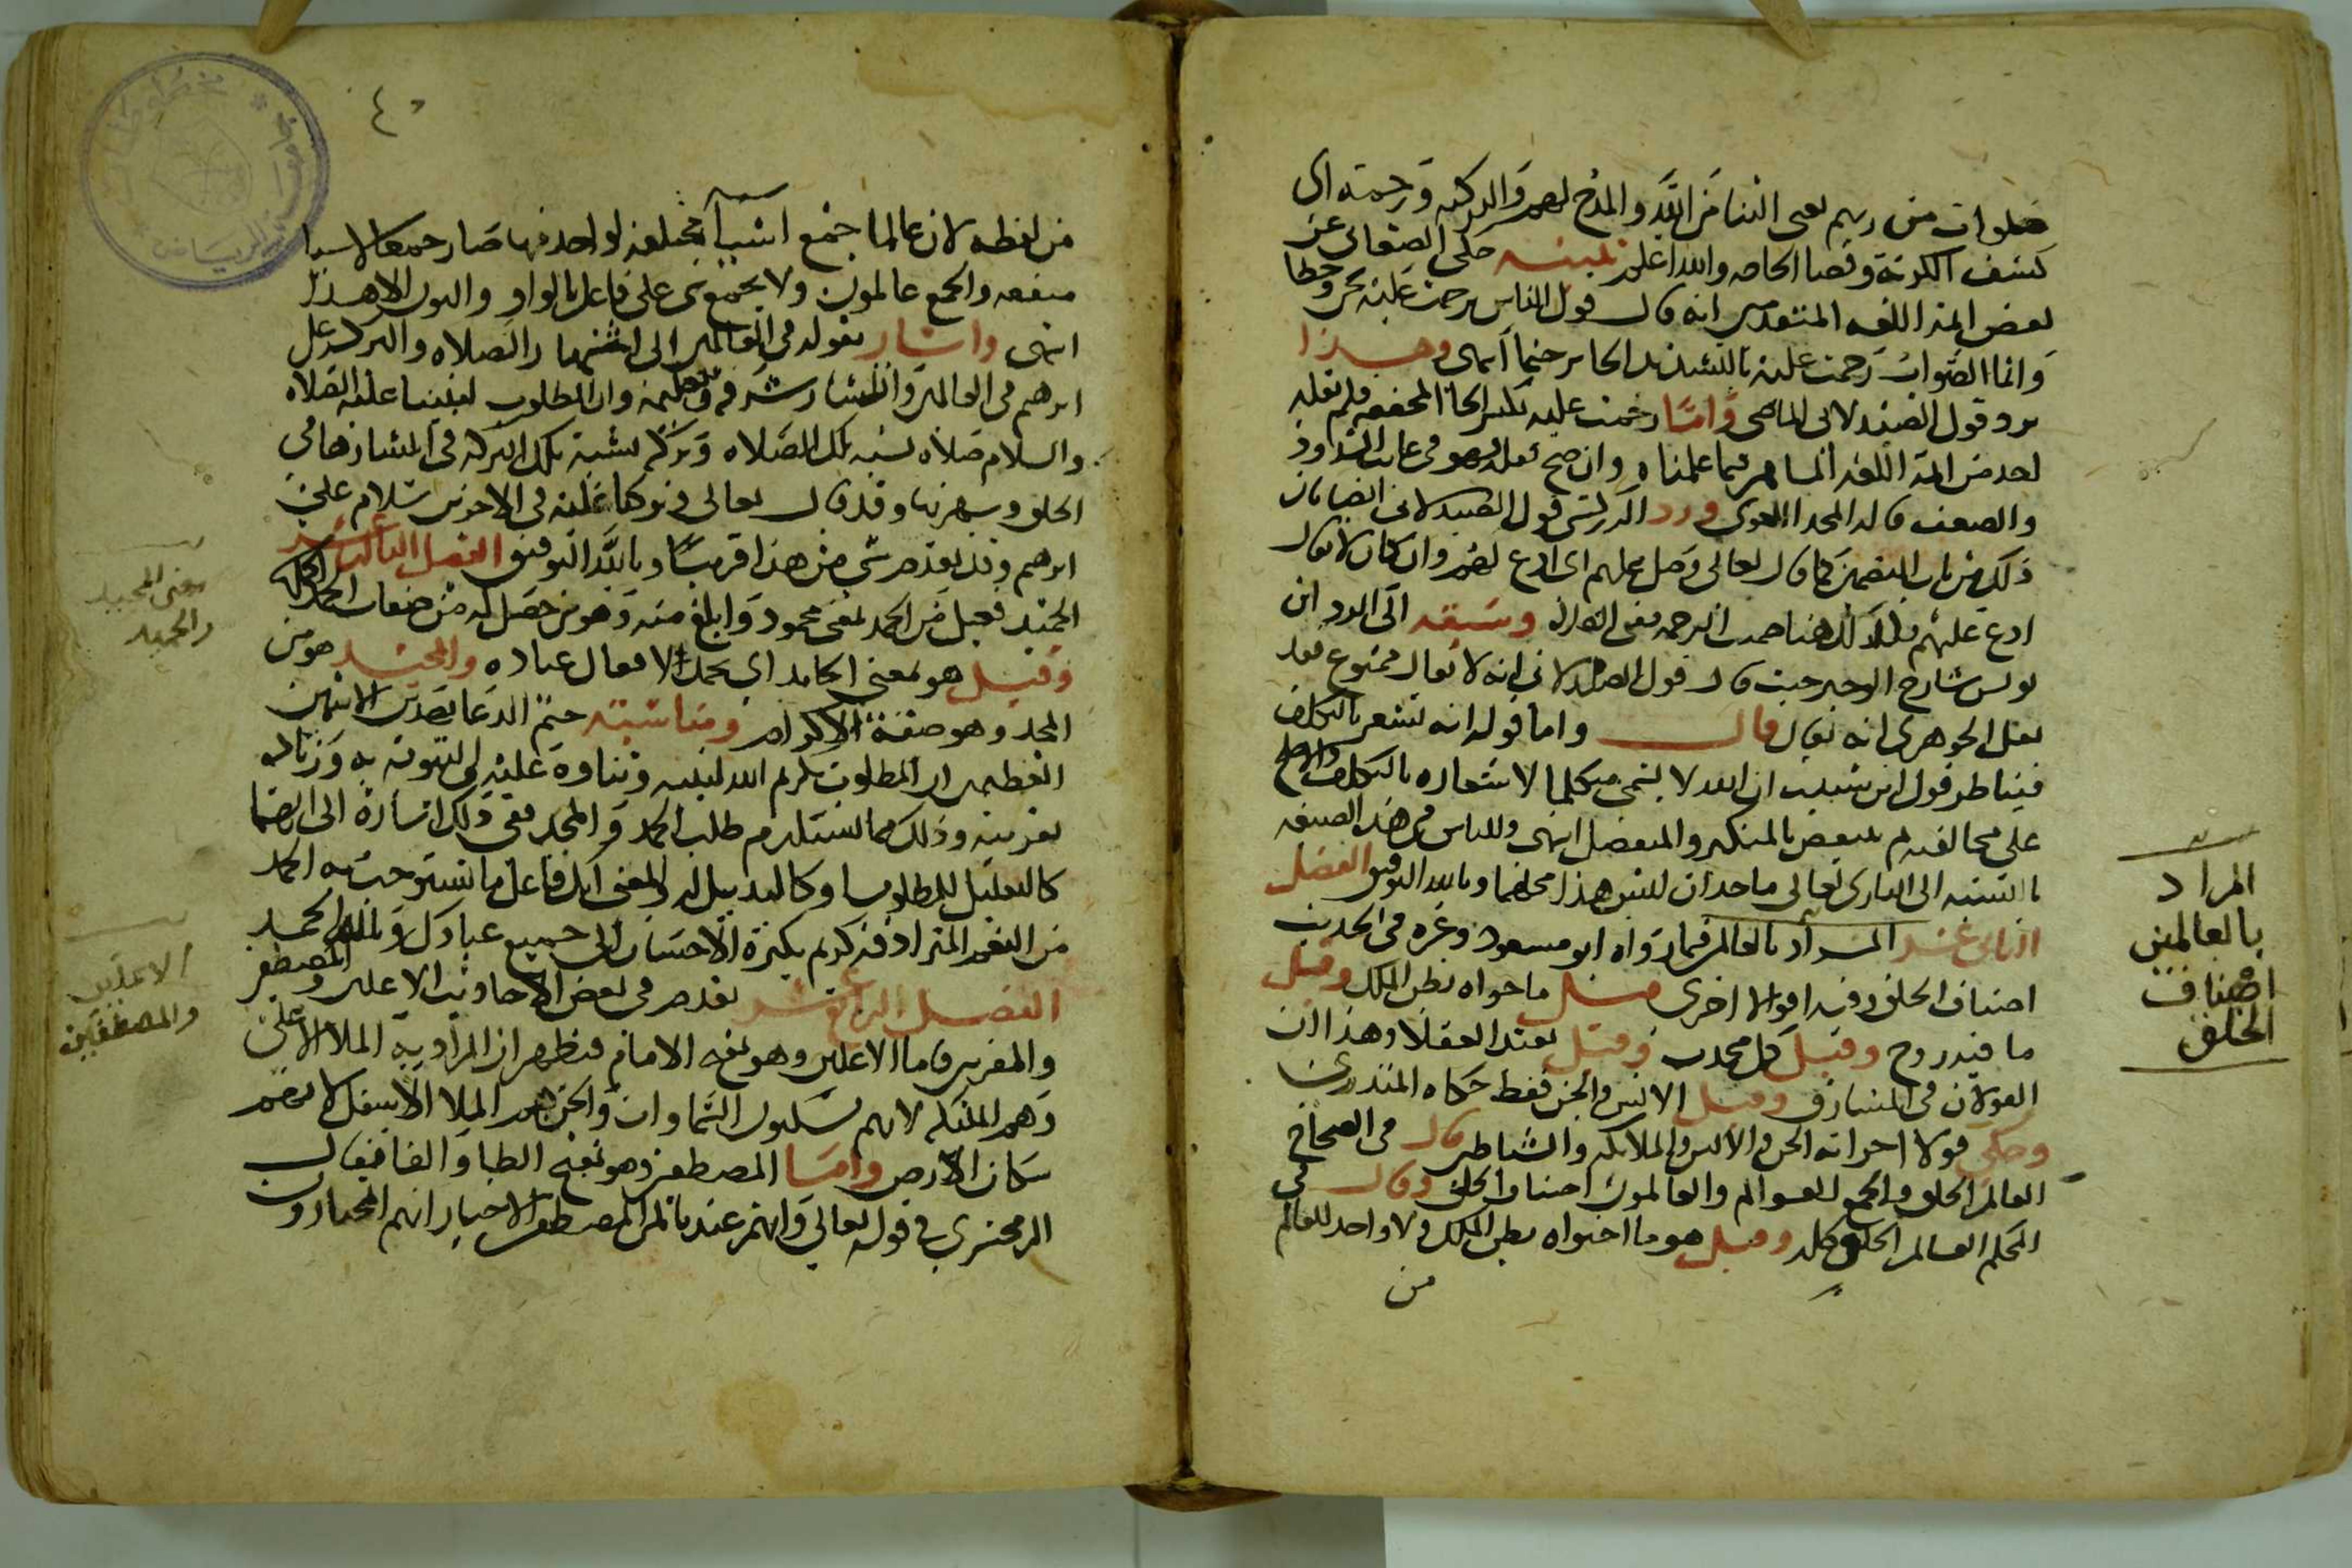 صلوات من ربهم يعني الثنا من الله والمدح لهم والبركه ورحمته اي
كشف الكربة وقضا الحاجه والله اعلم تنبيه حكى الصغاني عن
بعض ايمة اللغه المتقدمين انه قال قول الناس ترحمت عليه لحن وخطا
وانما الصواب رحمت عليه بالتشديد للحا ترحيما انتهى وهذا
يرد قول الصيدلاني الماضي واما رحمت عليه بكسر الحا المخففه فلم ينقله
احد من ايمة اللغه المشاهير فيما علمناه وان صح نقله فهو في غاية الشذوذ
والضعف قاله المجد اللغوي ورد الزركشي قول الصيدلاني ايضا بان
ذلك من باب التضمين كما قال تعالى وصل عليهم اي ادع لهم وان كان لا يقال
ادع عليهم فكذلك هنا ضمنت الرحمة معنى الصلاة وسبقه الى الرد ابن
يونس شارح الوجيز حيث قال قول الصيدلاني انه لا يقال ممنوع فقد
نقل الجوهري انه يقال قال واما قوله انه يشعر بالتكلف
فيناظر قول ابن شبيب ان الله لا يسمى متكلما لاشعاره بالتكلف والاصح
على مخالفته ثم ينقض بالمتكبر والمتفضل انتهى وللناس في هذه الصيغه
بالنسبه الى الباري تعالى مأخذان ليس هذا محلهما وبالله التوفيق الفصل
الثاني عشر المراد بالعالمين فيما رواه ابو مسعود وغيره في الحديث
اصناف الخلق وفيه اقوال اخرى قيل ما حواه بطن الفلك وقيل
ما فيه روح وقيل كل محدث وقيل بقيد العقلا وهذان
القولان في المشارق وقيل الانس والجن فقط حكاه المنذري
وحكى قولا اخر انه الجن والانس والملايكه والشياطين قال في الصحاح
العالم الخلق والجمع العوالم والعالمون اصناف الخلق وقال في
المحكم العالم الخلق كله وقيل هو ما احتواه بطن الفلك ولا واحد للعالم
من
المراد
بالعالمين
اصناف
الخلق
٤٠
من لفظه لان عالما جمع اشيا مختلفه لواحد منها صار جمعا لاشيا
متفقه والجمع عالمون ولا يجمع شي على فاعل بالواو والنون الا هذا
انتهى واشار بقوله في العالمين الى اشتهار الصلاه والبركه على
ابرهيم في العالمين وانتشار شرفه وتعظيمه وان المطلوب لنبينا عليه الصلاه
والسلام صلاه تشبه تلك الصلاه وبركه تشبه تلك البركه في انتشارها في
الخلق وشهرتها وقد قال تعالى وتركنا عليه في الاخرين سلام على
ابرهيم وقد تقدم شي من هذا قريبا وبالله التوفيق الفصل الثالث عشر
الحميد فعيل من الحمد بمعنى محمود وابلغ منه وهو من حصل له من صفات الحمد اكملها
وقيل هو بمعنى الحامد اي يحمد افعال عباده والمجيد هو من
المجد وهو صفة الاكرام ومناسبة ختم الدعا بهذين الاسمين
العظيمين ان المطلوب تكريم الله لنبيه وثناوه عليه والتنويه به وزياده
تقريبه وذلك مما يستلزم طلب الحمد والمجد ففي ذلك اشارة الى انهما
كالتعليل للمطلوب او كالتذييل له والمعنى انك فاعل ما تستوجب به الحمد
من النعم المترادفه كريم بكثرة الاحسان الى جميع عبادك ولله الحمد
الفصل الرابع عشر تقدم في بعض الاحاديث الاعلين والمصطفين
والمقربين فاما الاعلين وهو بفتح اللام فيظهر ان المراد به الملا الاعلى
وهم الملئكه لانهم يسكنون السماوات والجن هم الملا الاسفل لانهم
سكان الارض واما المصطفين وهو بفتح الطا والفا فقال
الزمخشري في قوله تعالى وانهم عندنا لمن المصطفين الاخيار انهم المختارون
معنى المجيد
والحميد
الاعلين
والمصطفين